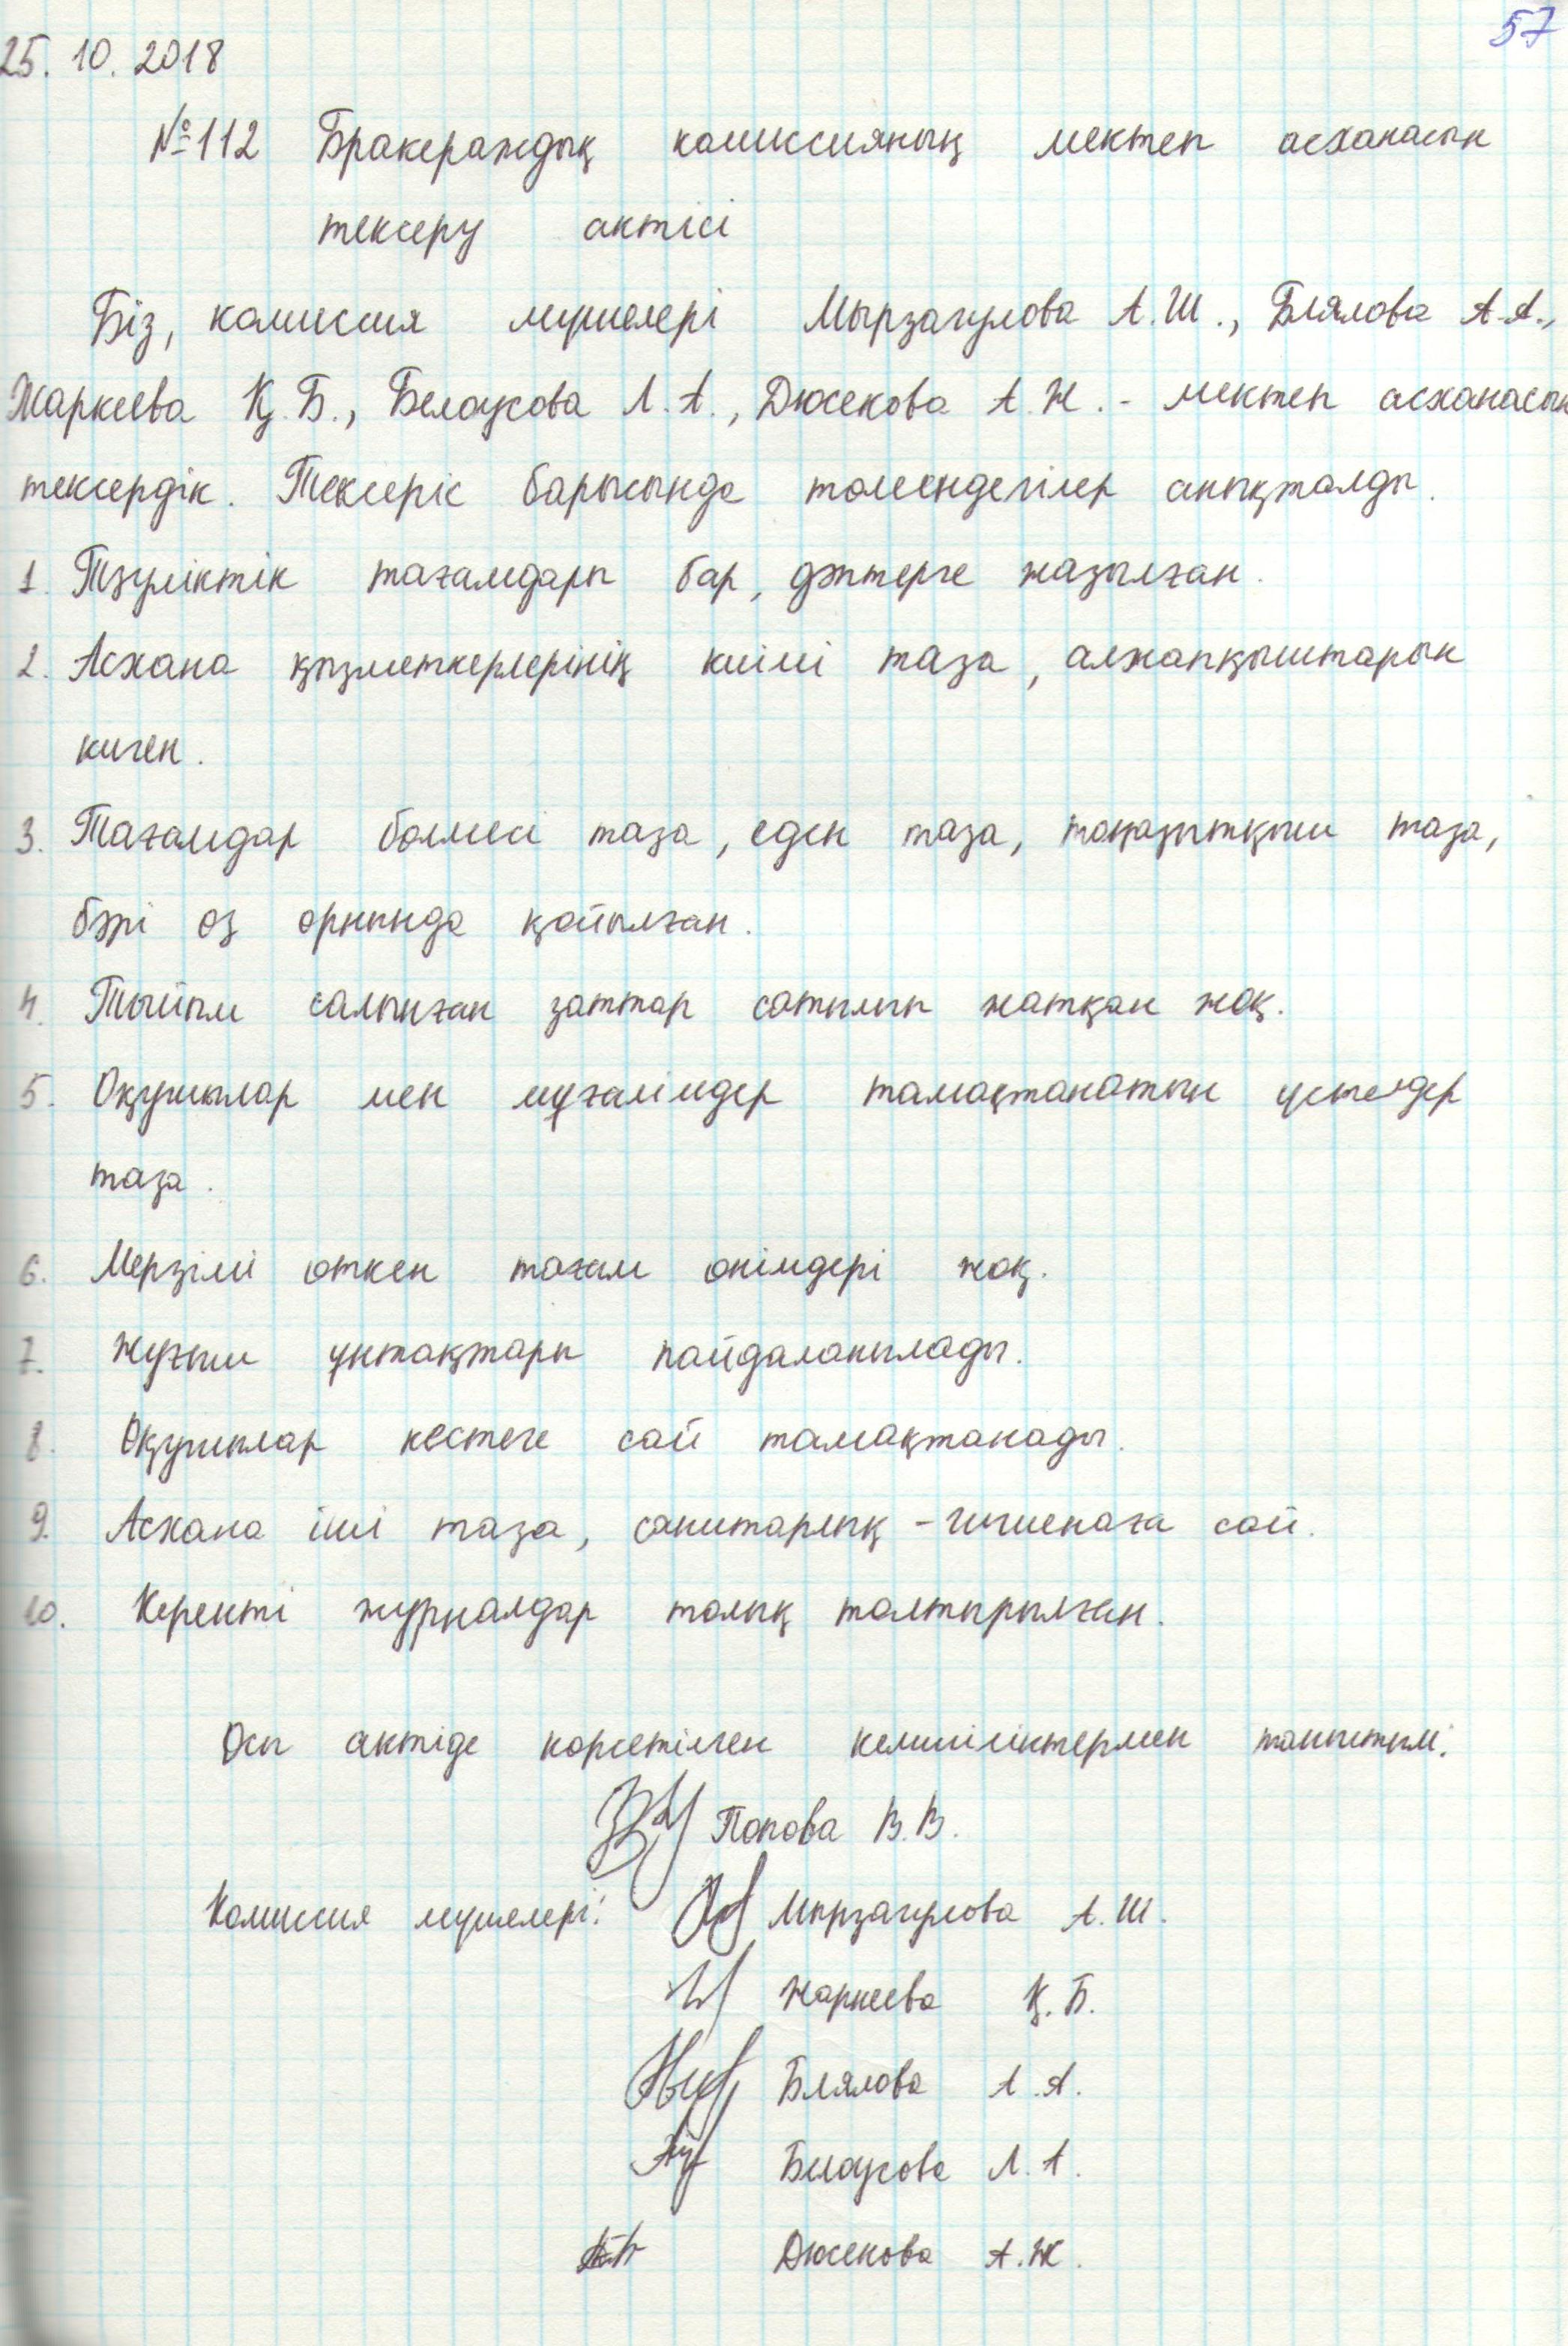 57
25. 10. 2018
№112 Бракераждық комиссияның мектеп асханасын
тексеру актісі
Біз, комиссия мүшелері Мырзагулова А.Ш., Блялова А.А.,
Жаркеева Қ.Б., Белоусова Л.А., Дюсекова А.Ж. - мектеп асханасын
тексердік. Тексеріс барысында төмендегілер анықталды.
1. Тәуліктік тағамдары бар, дәптерге жазылған.
2. Асхана қызметкерлерінің киімі таза, алжапқыштарын
киген.
3. Тағамдар бөлмесі таза, еден таза, тоңазытқыш таза,
бәрі өз орнында қойылған.
4. Тыйым салынған заттар сатылып жатқан жоқ.
5. Оқушылар мен мұғалімдер тамақтанатын үстелдер
таза.
6. Мерзімі өткен тағам өнімдері жоқ.
7. Жуғыш ұнтақтары пайдаланылады.
8. Оқушылар кестеге сай тамақтанады.
9. Асхана іші таза, санитарлық - гигиенаға сай.
10. Керекті журналдар толық толтырылған.
Осы актіде көрсетілген кемшіліктермен таныстым:
Попова В.В.
Комиссия мүшелері: Мырзагулова А.Ш.
Жаркеева Қ.Б.
Блялова А.А.
Белоусова Л.А.
Дюсекова А.Ж.